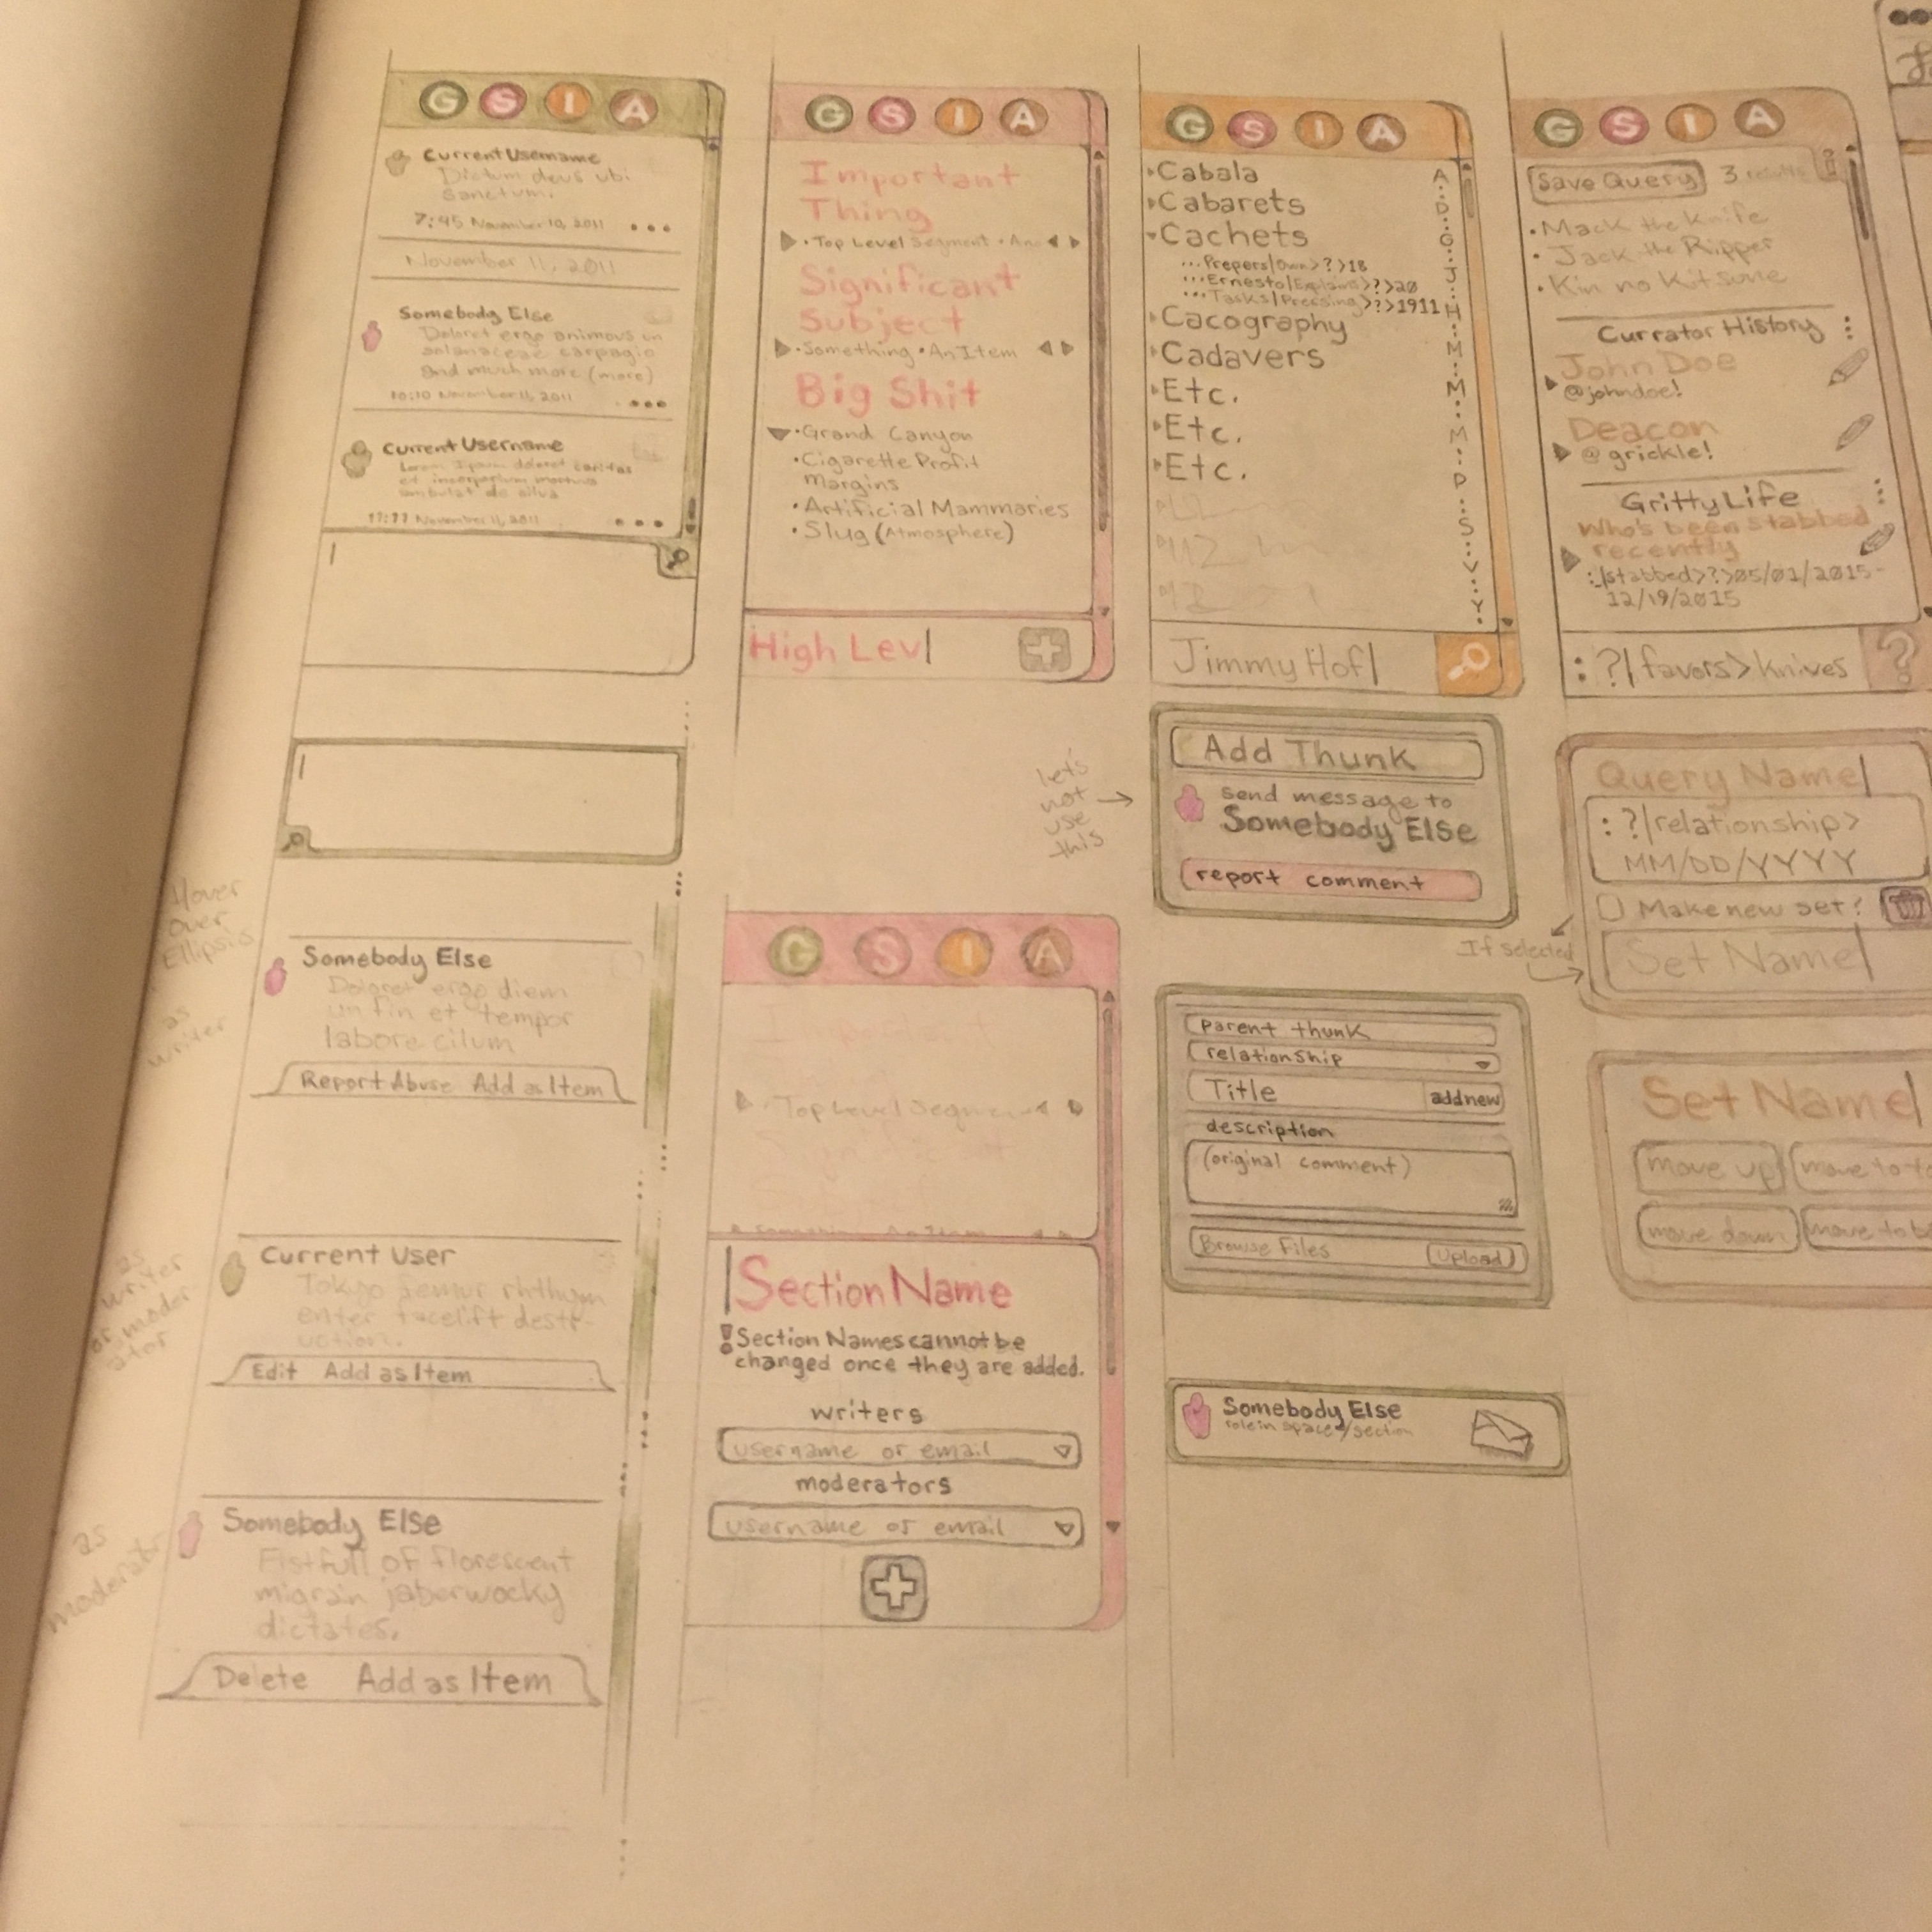 G S I A
CurrentUsername
Dictum deus ubi
sanctum.
7:45 November 10, 2011 ...
November 11, 2011
Somebody Else
Doloret ergo animous un
solanaceae carpagio
and much more (more)
10:10 November 11, 2011 ...
Current Username
Lorem Ipsum doloret caritas
et incorporium mortuis
ambulat de silva
11:11 November 11, 2011 ...
Hover
over
Ellipsis
as
writer
Somebody Else
Doloret ergo diem
un fin et tempor
labore cilum
Report Abuse Add as Item
as
writer
or moder-
ator
Current User
Tokyo femur rhthygm
enter facelift destr-
uction.
Edit Add as Item
as
moderator
Somebody Else
Fistfull of florescent
migrain jaberwocky
dictates.
Delete Add as Item
G S I A
Important
Thing
• Top Level Segment • An
Significant
Subject
• Something • An Item
Big Shit
• Grand Canyon
• Cigarette Profit
margins
• Artificial Mammaries
• Slug (Atmosphere)
High Lev|
G S I A
Top Level Segmen
Something An Item
|Section Name
! Section Names cannot be
changed once they are added.
writers
username or email
moderators
username or email
G S I A
Cabala
Cabarets
Cachets
...Prepers|Own>?>18
...Ernesto|Explains>?>20
...Tasks|Pressing>?>1911
Cacography
Cadavers
Etc.
Etc.
Etc.
A
:
D
:
G
:
J
:
H
:
M
:
M
:
M
:
P
:
S
:
V
:
Y
Jimmy Hof|
let's
not
use
this
Add Thunk
send message to
Somebody Else
report comment
parent thunk
relationship
Title addnew
description
(original comment)
Browse Files Upload
Somebody Else
role in space/section
G S I A
Save Query 3 results
• Mack the Knife
• Jack the Ripper
• Kin no Kitsune
Currator History
John Doe
@johndoe!
Deacon
@grickle!
Gritty Life
Who's been stabbed
recently
:|stabbed>?>05/01/2015-
12/19/2015
:?|favors>knives ?
Query Name|
:?|relationship>
MM/DD/YYYY
Make new set?
If selected
Set Name|
Set Name|
move up move to to
move down move to bo